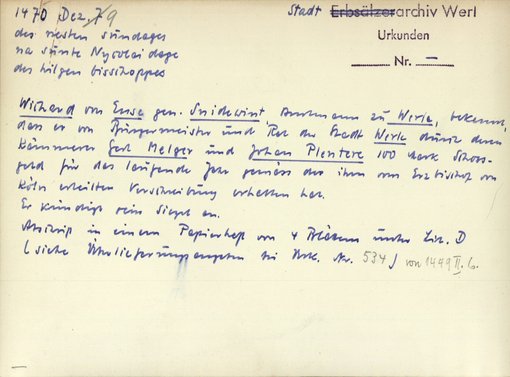 1470 Dez. 9
Stadt Erbsälzerarchiv Werl
Urkunden
Nr. —
des nesten sundages
na sunte Nycolai dage
des hilgen bisschoppes
Wichard von Ense gen. Snidewint Amtmann zu Werle, bekennt,
dass er von Bürgermeister und Rat der Stadt Werle durch deren
Kämmerer Gert Melger und Johan Plentere 100 Mark Schoss-
geld für das laufende Jahr gemäss der ihm vom Erzbischof von
Köln erteilten Verschreibung erhalten hat.
Er kündigt sein Siegel an.
Abschrift in einem Papierheft von 4 Blättern unter Lit. D
(siehe Überlieferungsangaben bei Urk. Nr. 534) von 1449 II. 6.